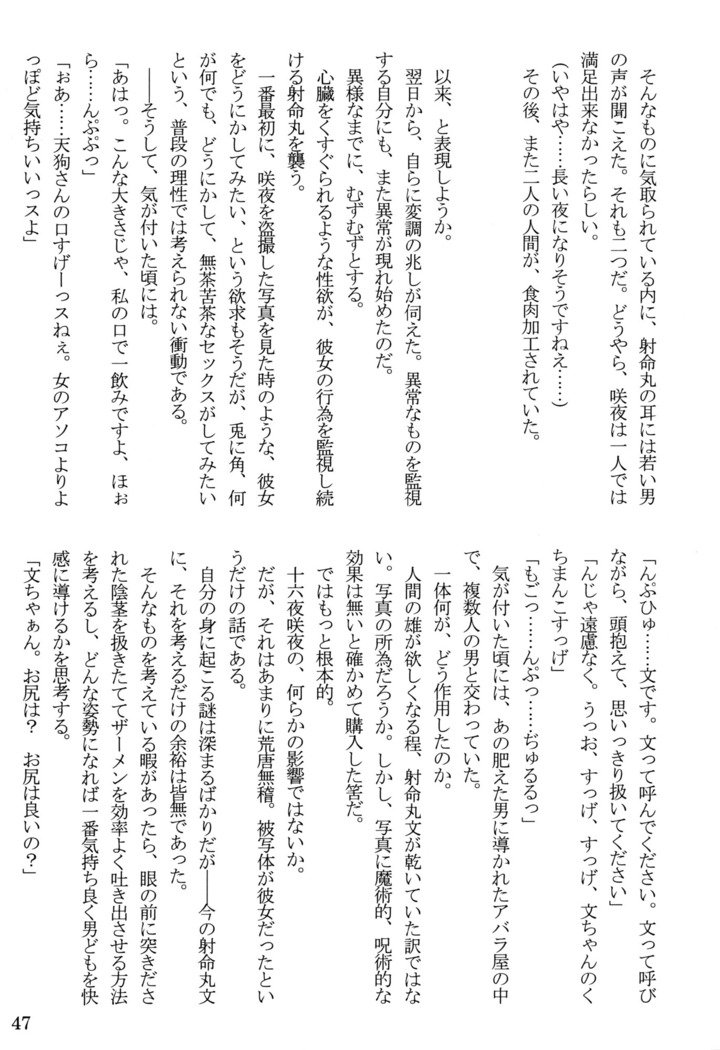 そんなものに気取られている内に、射命丸の耳には若い男
の声が聞こえた。それも二つだ。どうやら、咲夜は一人では
満足出来なかったらしい。
(いやはや……長い夜になりそうですねえ……)
その後、また二人の人間が、食肉加工されていた。
以来、と表現しようか。
翌日から、自らに変調の兆しが伺えた。異常なものを監視
する自分にも、また異常が現れ始めたのだ。
異様なまでに、むずむずとする。
心臓をくすぐられるような性欲が、彼女の行為を監視し続
ける射命丸を襲う。
一番最初に、咲夜を盗撮した写真を見た時のような、彼女
をどうにかしてみたい、という欲求もそうだが、兎に角、何
が何でも、どうにかして、無茶苦茶なセックスがしてみたい
という、普段の理性では考えられない衝動である。
――そうして、気が付いた頃には。
「あはっ。こんな大きさじゃ、私の口で一飲みですよ、ほぉ
ら……んぷぷっ」
「ぉあ……天狗さんの口すげーっスねぇ。女のアソコよりよ
っぽど気持ちいいっスよ」
「んぷひゅ……文です。文って呼んでください。文って呼び
ながら、頭抱えて、思いっきり扱いてください」
「んじゃ遠慮なく。うっお、すっげ、すっげ、文ちゃんのく
ちまんこすっげ」
「もごっ……んぷっ……ぢゅるるっ」
気が付いた頃には、あの肥えた男に導かれたアバラ屋の中
で、複数人の男と交わっていた。
一体何が、どう作用したのか。
人間の雄が欲しくなる程、射命丸文が乾いていた訳ではな
い。写真の所為だろうか。しかし、写真に魔術的、呪術的な
効果は無いと確かめて購入した筈だ。
ではもっと根本的。
十六夜咲夜の、何らかの影響ではないか。
だが、それはあまりに荒唐無稽。被写体が彼女だったとい
うだけの話である。
自分の身に起こる謎は深まるばかりだが――今の射命丸文
に、それを考えるだけの余裕は皆無であった。
そんなものを考えている暇があったら、眼の前に突きださ
れた陰茎を扱きたててザーメンを効率よく吐き出させる方法
を考えるし、どんな姿勢になれば一番気持ち良く男どもを快
感に導けるかを思考する。
「文ちゃぁん。お尻は？　お尻は良いの？」
47